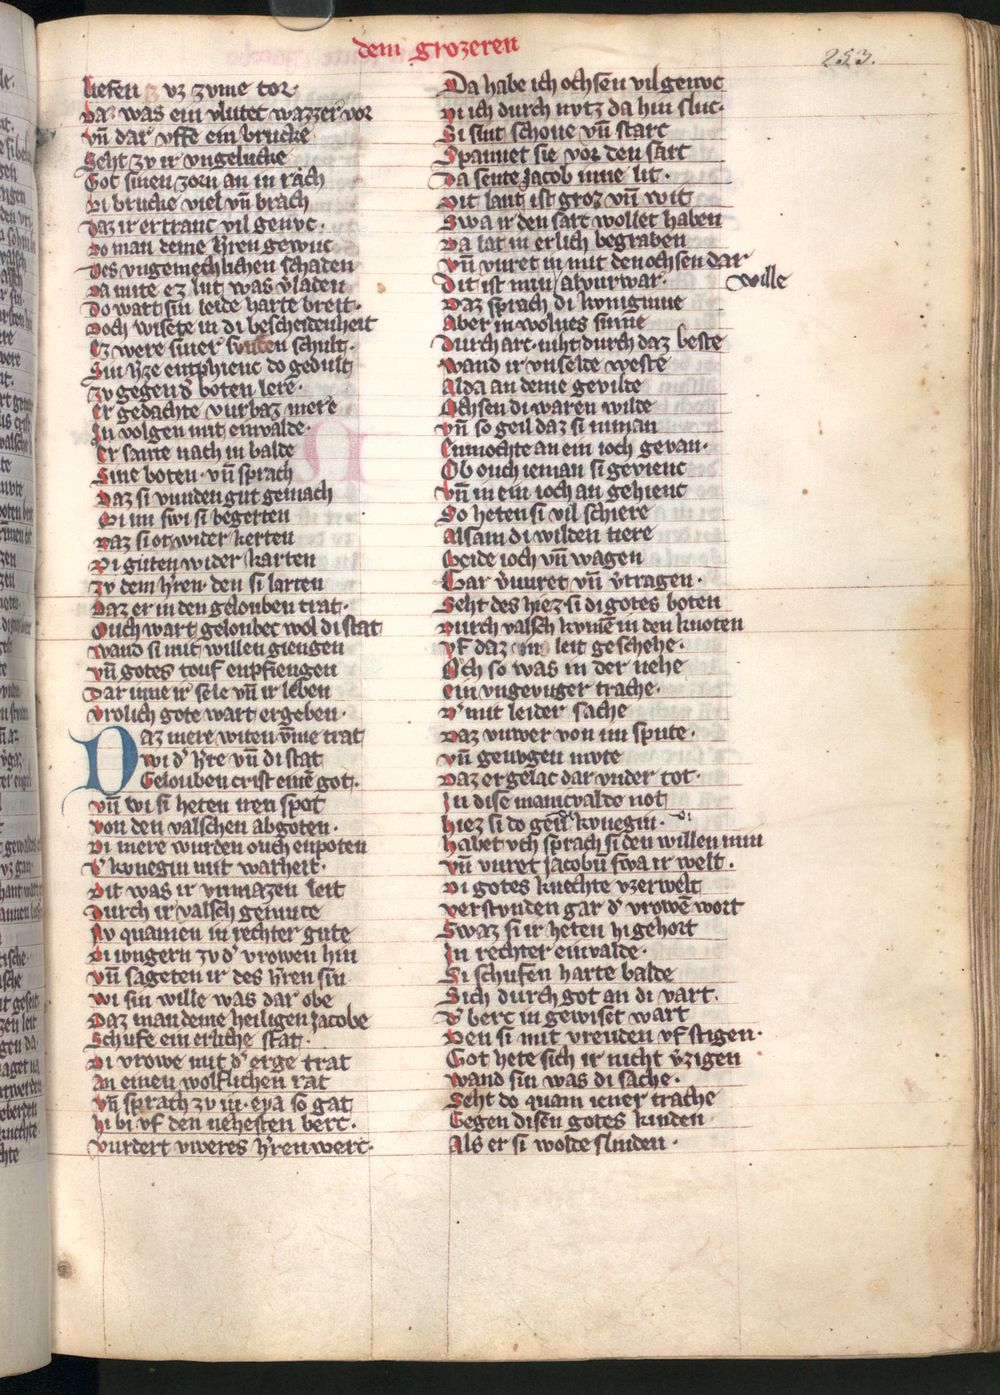 dem grozeren
253.
liefen vz zvme tor
Da was ein vlutec wazzer vor
vn̄ dar vffe ein brucke
Seht zv ir vngelucke
Got sinen zorn an in rach
Di brucke viel vn̄ brach
Daz ir ertranc vil genvc.
Do man deme h̓ren gewuc
Des vngemechlichen schaden
Da mite ez lut was v̓laden
Do wart sin leide harte breit.
Doch wisete in di bescheidenheit
Ez were siner sunden schult.
Sin h̓ze entphienc do gedult
zv gegen d̓ boten lere.
Er gedachte vurbaz mere
In volgen mit einvalde.
Er sante nach in balde
Sine boten. vn̄ sprach
Daz si vunden gut gemach
Bi im swi si begerten
Daz si ot wider kerten
Di guten wider karten
Zv dem h̓ren. den si larten
Daz er in den gelouben trat.
Ouch wart geloubec wol di stat
wand si mit willen giengen
vn̄ gotes touf enpfiengen
Dar inne ir sele vn̄ ir leben
vrolich gote wart ergeben.
Daz mere witen vm̄e trat
wi d̓ h̓re vn̄ di stat
Gelouben crist eime got.
vn̄ wi si heten iren spot
von den valschen abgoten.
Di mere wurden ouch enpoten
D̓ konegin mit warheit.
Dit was ir vnmazen leit
Durch ir valsch gemute
Nv quamen in rechter gute
Di iungern zv d̓ vrowen hin
vn̄ sageten ir des h̓ren sin
wi sin wille was dar obe
Daz man deme heiligen Jacobe
Schufe ein erliche stat.
Di vrowe mit d̓ erge trat
An einen wolflichen rat
vn̄ sprach zv in. eya so gat
hi bi vf den nehesten berc.
vurdert vweres h̓ren werc.
Da habe ich ochsen vil genvc
Di ich durch nvtz da hin sluc.
Si sint schone vn̄ starc
Spannet sie vor den sarc
Da sente Jacob inne lit.
Dit lant ist groz vn̄ wit
Swa ir den sarc wollet haben
Da lat in erlich begraben
vn̄ vuret in mit den ochsen dar
Dit ist min alvurwar. wille
Daz sprach di koniginne
Aber in wolues sinne
Durch arc. niht durch daz beste
wand ir vnselde weste
Alda an deme gevilde
Ochsen di waren wilde
vn̄ so geil daz si niman
Enmochte an ein ioch gevan.
Ob ouch ieman si gevienc
vn̄ in ein ioch an gehienc
So heten si vil schiere
Alsam di wilden tiere
Beide ioch vn̄ wagen
Gar v̓vuret vn̄ v̓tragen.
Seht des hiez si di gotes boten
Durch valsch kvmē in den knoten
vf daz in leit geschehe.
Och so was in der nehe
ein vngevuger trache.
D̓ mit leider sache
Daz vuwer von im spute.
vn̄ genvgen mvte
Daz er gelac dar vnder tot.
In dise manicvalde not
hiez si do gen̄ d̓ konegin. di
habet vch sprach si den willen min
vn̄ vuret Jacobū swa ir welt.
Di gotes knechte vzerwelt
verstvnden gar d̓ vrowē wort
Swaz si ir heten hi gehort
In rechter einvalde.
Si schufen harte balde
Sich durch got an di vart.
D̓ berc in gewiset wart
Den si mit vreuden vf stigen.
Got hete sich ir nicht v̓zigen
wand sin was di sache.
Seht do quam iener trache
Gegen disen gotes kinden
Als er si wolde slinden.